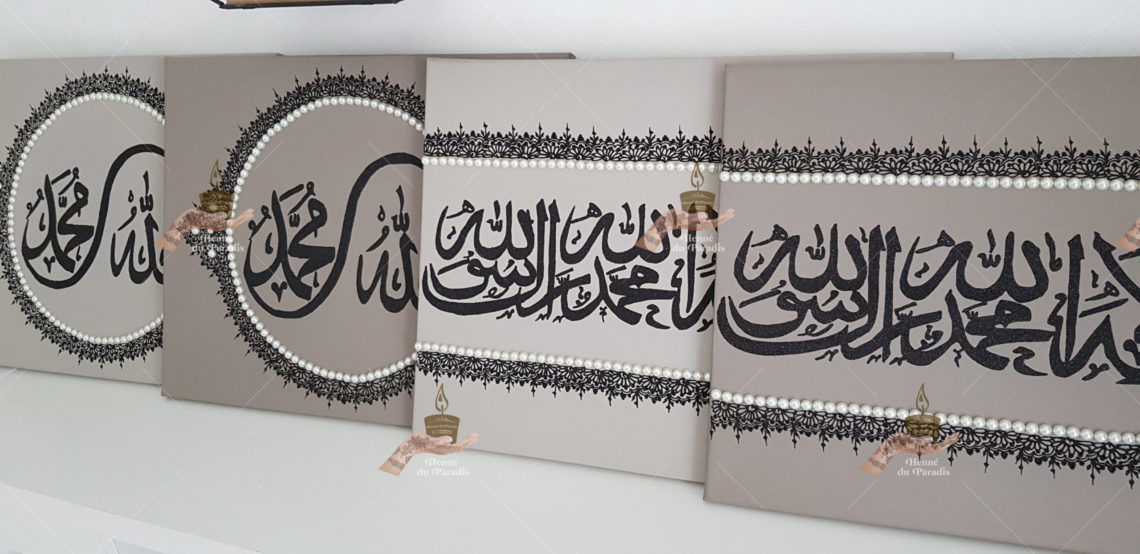 الله محمد
الله محمد
الله محمد رسول الله
الله محمد رسول الله
Henné
du Paradis
Henné
du Paradis
Henné
du Paradis
Henné
du Paradis